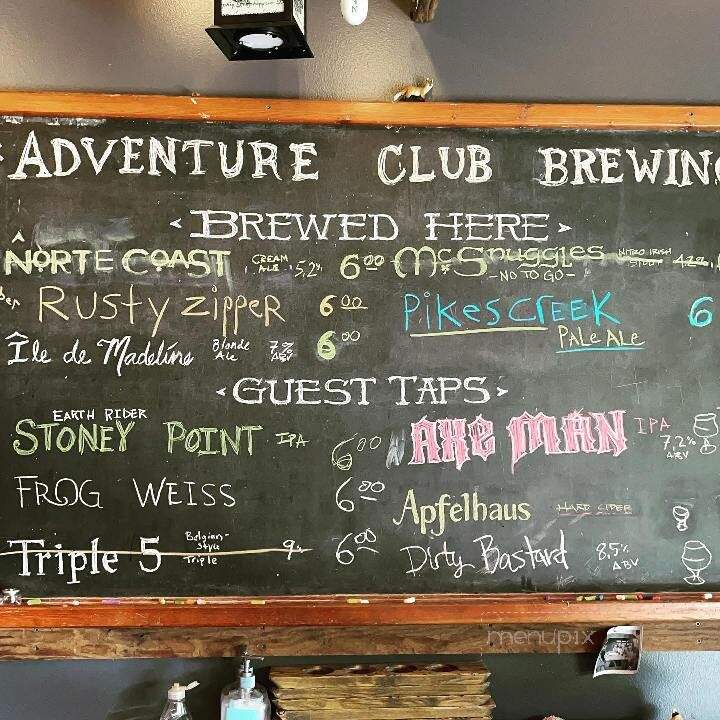 ADVENTURE CLUB BREWING
BREWED HERE
NORTE COAST CREAM ALE 5.2% 6.00
McSnuggles NITRO IRISH STOUT 4.2%
-NO TO GO-
Rusty zipper 6.00
Pikes Creek 6
Pale Ale
Île de Madeline Blonde Ale 7% ABV 6.00
GUEST TAPS
EARTH RIDER
STONEY POINT IPA 6.00
AXE MAN IPA 7.2% ABV
FROG WEISS 6.00
Apfelhaus HARD CIDER
Triple 5 Belgian-Style Triple 9% 6.00
Dirty Bastard 8.5% ABV
menupix